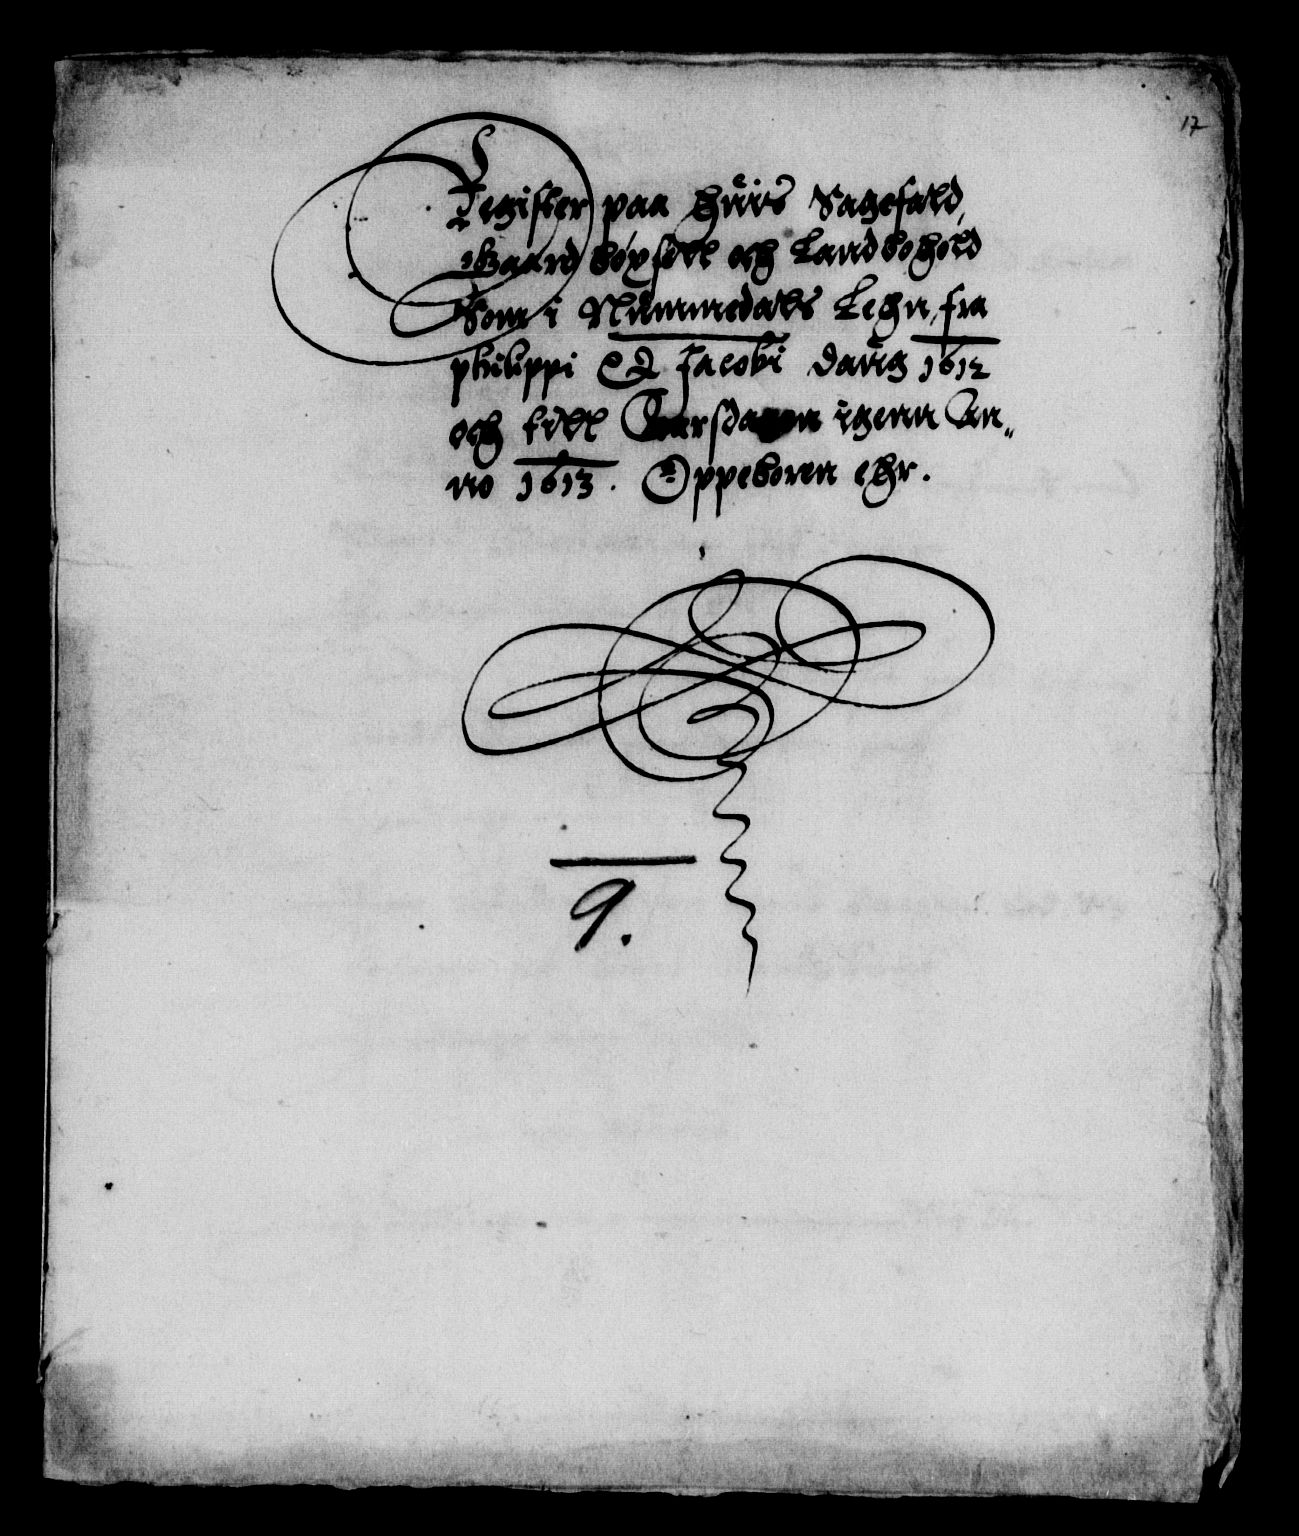 17
Register paa huis Sagefald,
Gaard bøysell och Landbohold
Som i Nummedals Lehn, fra
philippi et Jacobi daug 1612
och till Aarsdagen igenn An„
no 1613. Oppeboren ehr.
9.